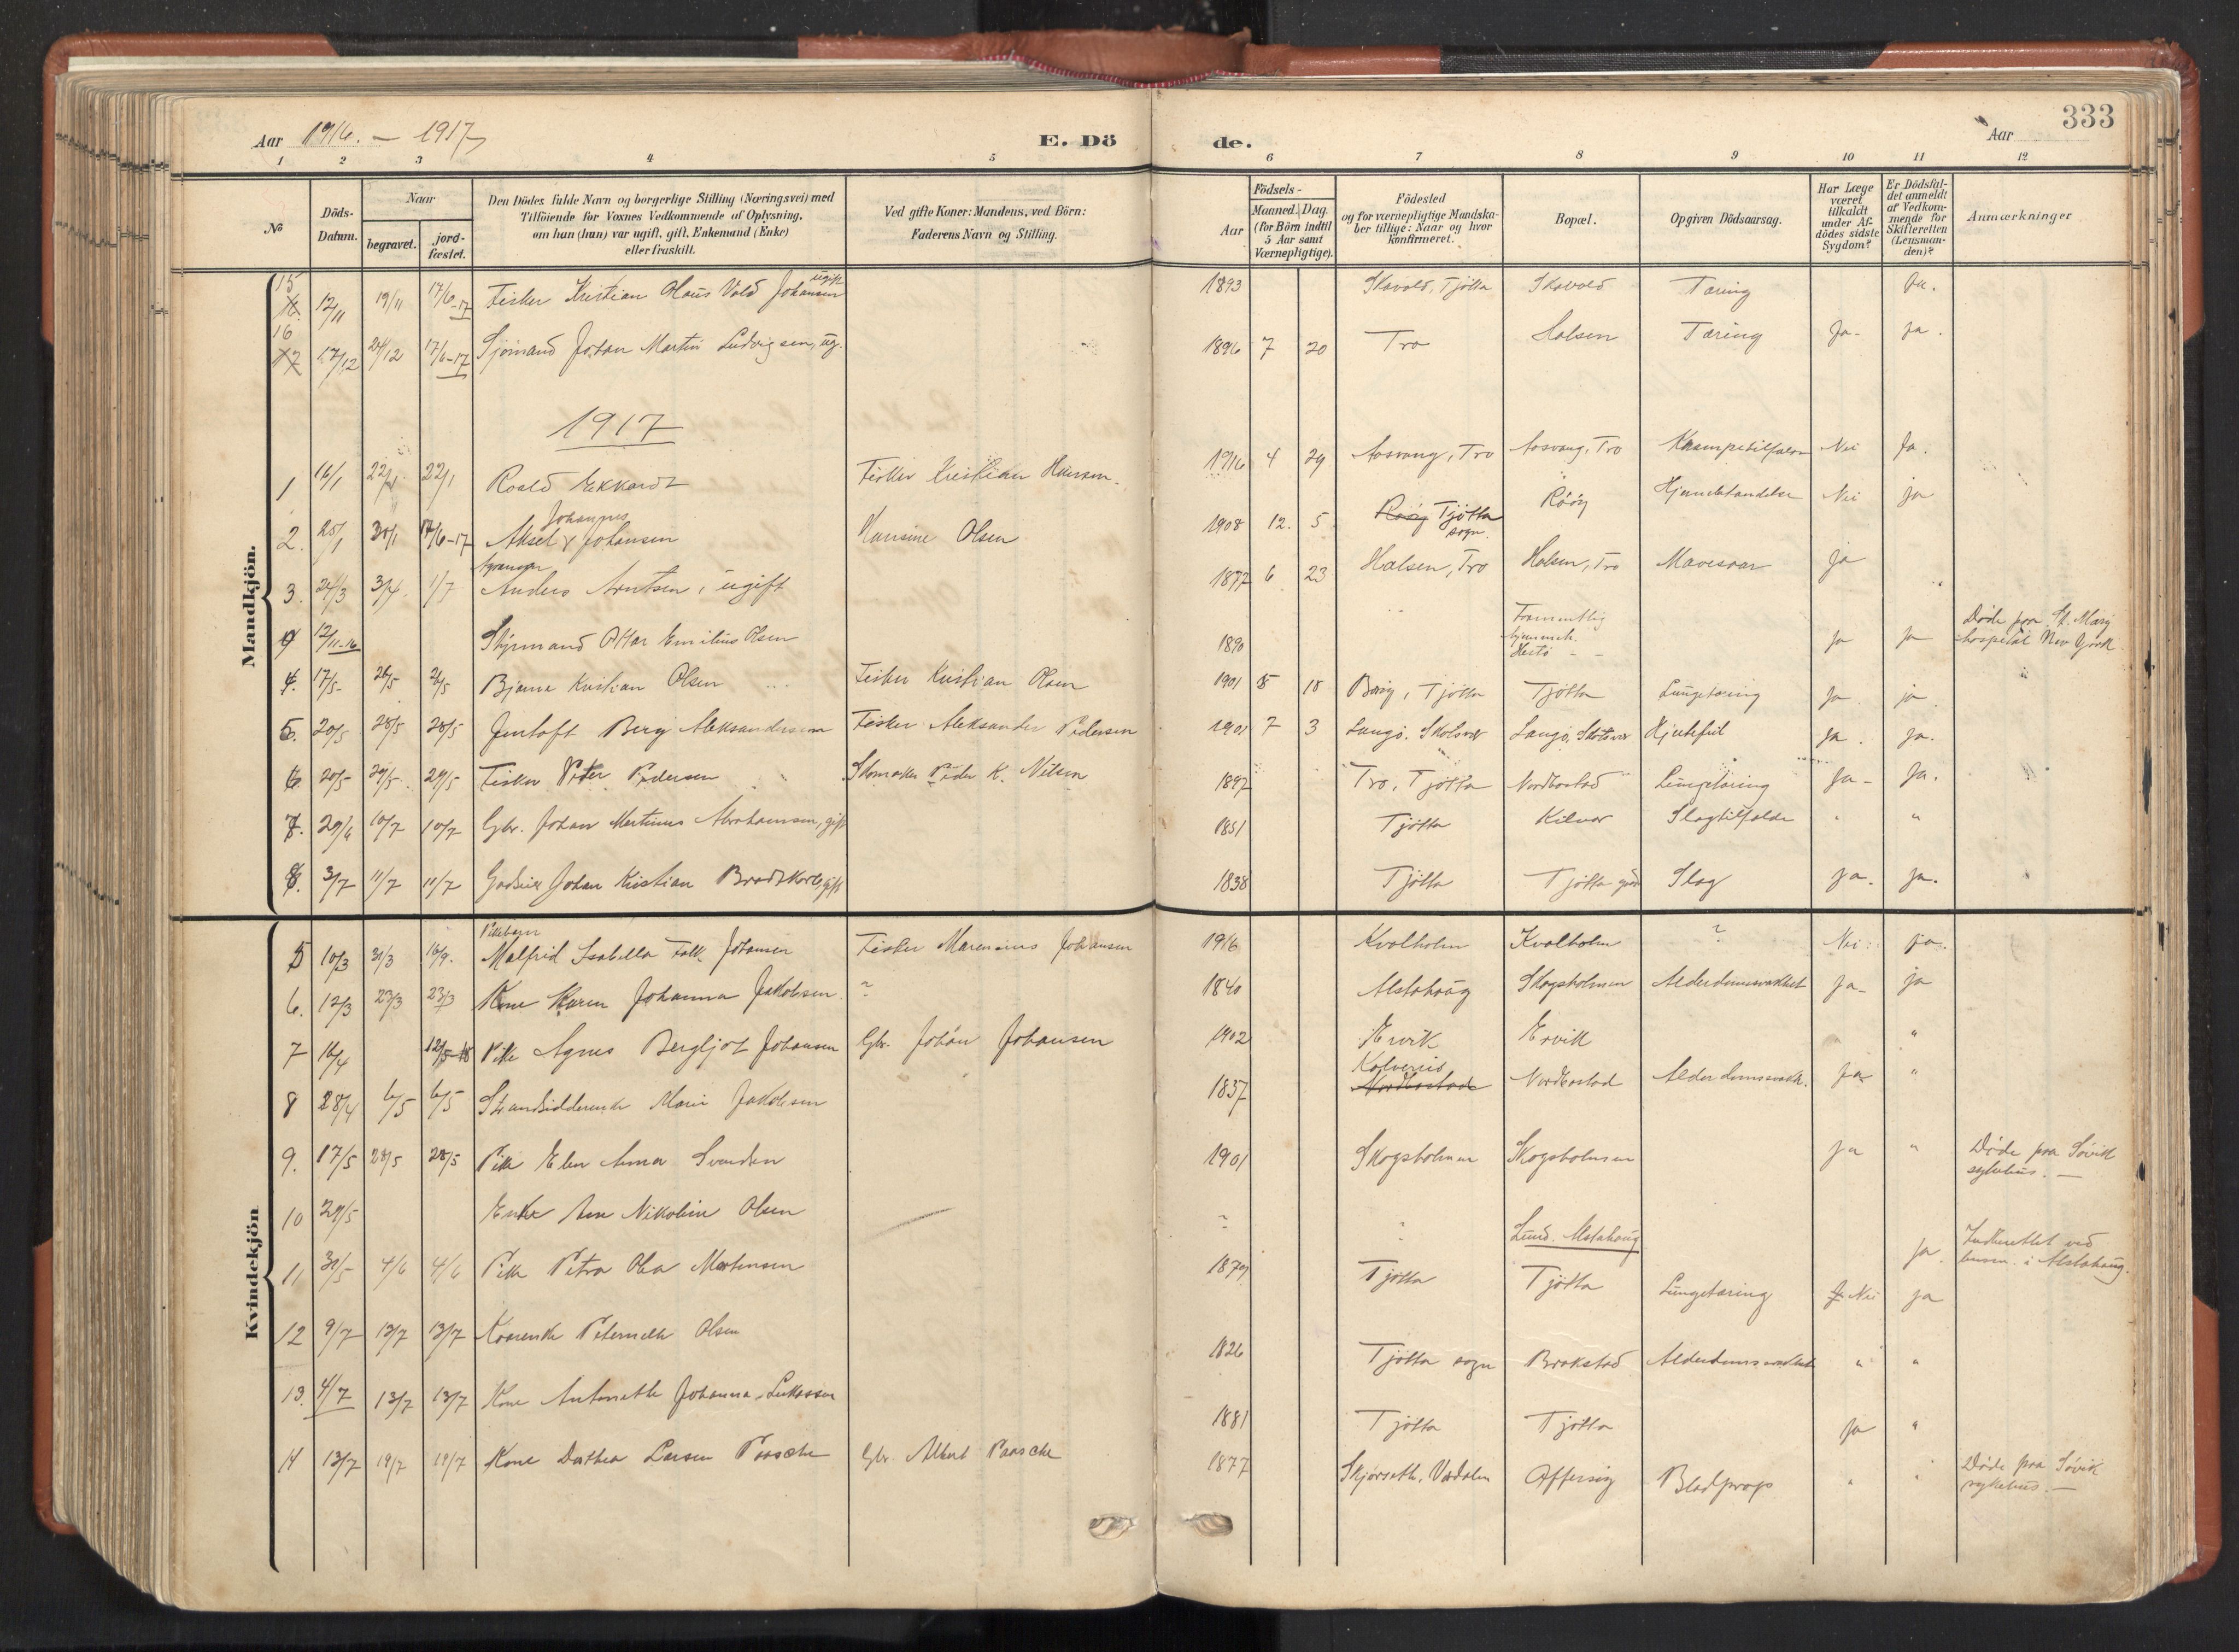 333
Aar 1916. - 1917
E. Dö
de.
Aar
1 2 3 4 5 6 7 8 9 10 11 12
No
Döds-Datum.
Naar
begravet.
jord-fæstet.
Den Dödes fulde Navn og borgerlige Stilling (Næringsvei) med
Tilföiende for Voxnes Vedkommende af Oplysning,
om han (hun) var ugift, gift, Enkemand (Enke)
eller fraskilt.
Ved gifte Koner: Mandens, ved Börn:
Faderens Navn og Stilling.
Födsels-
Aar
Maaned. Dag.
(for Börn indtil
5 Aar samt
Værnepligtige).
Födested
og for værnepligtige Mandska-
ber tillige: Naar og hvor
konfirmeret.
Bopæl.
Opgiven Dödsaarsag.
Har Læge
været
tilkaldt
under Af-
dödes sidste
Sygdom?
Er Dödsfal-
det anmeldt
af Vedkom-
mende for
Skifteretten
(Lensman-
den)?
Anmærkninger
Mandkjön.
15 12/11 19/11 17/6-17 Fisker Kristian Olaus Vold Johansen ugift 1893 Skavold, Tjötta Skavold Tæring Ja.
16 17/12 24/12 17/6-17 Sjömand Johan Martin Ludvigsen, ug. 1896 7 20 Tro Halsen Tæring Ja- ja.
1917
1 16/1 22/1 22/1 Roald Ekkardt Fisker Kristian Hansen. 1916 4 29 Aasvang, Tro Aasvang, Tro Krampetilfælde Nei Ja.
2. 25/1 30/1 17/6-17 Aksel Johannes Johansen Hansine Olsen 1908 12. 5 Rööy Tjötta sogn. Rööy Hjernebetændelse Nei ja
3. 24/3 3/4 1/7 Anders Arntsen, ugift 1877 6 23 Halsen, Tro Halsen, Tro Mavesaar ja
12/11-16 Styrmand Ottar Emilius Olsen 1890 Hestö ja ja Döde paa St. Mary hospital New York
4. 17/5 26/5 26/5 Bjarne Kristian Olsen Fisker Kristian Olsen 1901 8 18 Tjötta Tjötta Lungetæring Ja ja.
5. 20/5 28/5 28/5 Jentoft Berg Aleksandersen Fisker Aleksander Pedersen 1901 7 3 Langö. Skotsvær Langö, Skotsvær Hjertefeil ja. ja.
6. 20/5 29/5 29/5 Fisker Peter Pedersen Skomaker Peder K. Nilsen 1897 Tro, Tjötta Nordbostad Lungetæring Ja- Ja.
7. 29/6 10/7 10/7 Gbr. Johan Martinus Abrahamsen, gift 1851 Tjötta Kilvær Slagtilfælde " "
8. 3/7 11/7 11/7 Godseier Johan Kristian Brodtkorb, gift 1838 Tjötta Tjötta gård Slag ja. ja.
Kvindekjön
5 10/3 31/3 16/9. Pikebarn Malfrid Isabella Falk Johansen Fisker Marensius Johansen 1916 Kvalholm Kvalholm ? Nei ja.
6. 12/3 23/3 23/3 Kone Karen Johanna Jakobsen. ? 1840 Alstahaug Skogsholmen Alderdomssvakhet Ja- ja
7 16/4 12/5-18 Pike Agnes Bergljot Johansen Gbr. Johan Johansen 1902 Ervik Ervik "
8 28/4 6/5 6/5 Strandsidderenke Marie Jakobsen 1837 Nordbostad Nordbostad Alderdomssvakh. Ja "
9. 17/5 28/5 28/5 Pike Elen Anna Svendsen 1901 Skogsholmen Skogsholmen ja " Döde paa Sövik sykehus. -
10 29/5 Enke Ane Nikoline Olsen ? Lund. Alstahaug ja. i Alstahaug.
11 31/5 4/6 4/6 Pike Petra Olea Mortensen 1879 Tjötta Tjötta Lungetæring Nei ja
12 9/7 13/7 13/7 Kaarenke Peternelle Olsen 1826 Tjötta sogn Brakstad Alderdomssvakhet " "
13. 4/7 13/7 13/7 Kone Antonette Johanna Lukassen 1881 Tjötta Tjötta Ja "
14 13/7 19/7 19/7 Kone Dorthea Larsen Paasche Gbr. Albert Paasche 1877 Skjörseth, Værdalen Offersöy Blodprop " " Döde paa Sövik sykehus. -